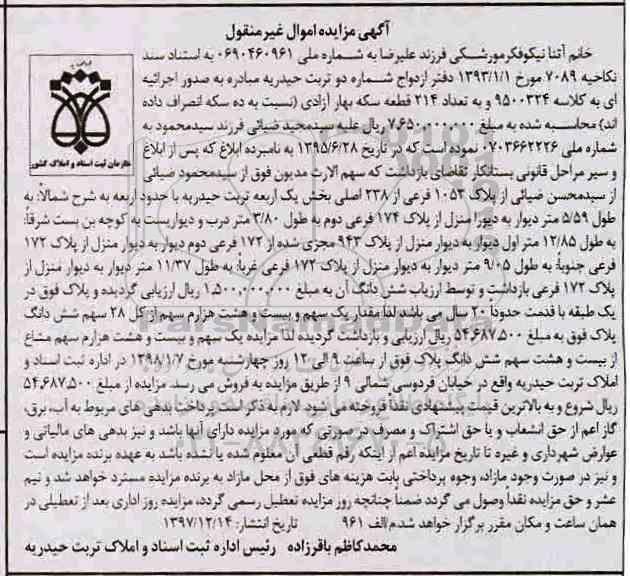 آگهی مزایده اموال غیرمنقول
خانم آتنا نیکوفکرمورشکی فرزند علیرضا به شماره ملی ۰۶۹۰۴۶۰۹۶۱ به استناد سند
نکاحیه ۷۰۸۹ مورخ ۱۳۹۳/۱/۱ دفتر ازدواج شماره دو تربت حیدریه مبادره به صدور اجرائیه
ای به کلاسه ۹۵۰۰۳۲۴ و به تعداد ۲۱۴ قطعه سکه بهار آزادی (نسبت به ده سکه انصراف داده
اند) محاسبه شده به مبلغ ۷,۶۵۰,۰۰۰,۰۰۰ ریال علیه سیدمجید ضیائی فرزند سیدمحمود به
شماره ملی ۰۷۰۳۶۶۲۲۲۶ نموده است که در تاریخ ۱۳۹۵/۶/۲۸ به نامبرده ابلاغ که پس از ابلاغ
و سیر مراحل قانونی بستانکار تقاضای بازداشت که سهم الارث مدیون فوق از سیدمحمود ضیائی
از سیدمحسن ضیائی از پلاک ۱۰۵۳ فرعی از ۲۳۸ اصلی بخش یک اربعه تربت حیدریه با حدود اربعه به شرح شمالاً: به
طول ۵/۵۹ متر دیوار به دیوار منزل از پلاک ۱۷۴ فرعی دوم به طول ۳/۸۰ متر درب و دیواریست به کوچه بن بست شرقاً:
به طول ۱۲/۸۵ متر اول دیوار به دیوار منزل از پلاک ۹۴۳ مجزی شده از ۱۷۲ فرعی دوم دیوار به دیوار منزل از پلاک ۱۷۲
فرعی جنوباً: به طول ۹/۰۵ متر دیوار به دیوار منزل از پلاک ۱۷۲ فرعی غرباً: به طول ۱۱/۳۷ متر دیوار به دیوار منزل از
پلاک ۱۷۲ فرعی بازداشت و توسط ارزیاب شش دانگ آن به مبلغ ۱,۵۰۰,۰۰۰,۰۰۰ ریال ارزیابی گردیده و پلاک فوق در
یک طبقه با قدمت حدوداً ۲۰ سال می باشد لذا مقدار یک سهم و بیست و هشت هزارم سهم از کل ۲۸ سهم شش دانگ
پلاک فوق به مبلغ ۵۴,۶۸۷,۵۰۰ ریال ارزیابی و بازداشت گردیده لذا مزایده یک سهم و بیست و هشت هزارم سهم مشاع
از بیست و هشت سهم شش دانگ پلاک فوق از ساعت ۹ الی ۱۲ روز چهارشنبه مورخ ۱۳۹۸/۱/۷ در اداره ثبت اسناد و
املاک تربت حیدریه واقع در خیابان فردوسی شمالی ۹ از طریق مزایده به فروش می رسد. مزایده از مبلغ ۵۴,۶۸۷,۵۰۰
ریال شروع و به بالاترین قیمت پیشنهادی نقداً فروخته می شود لازم به ذکر است پرداخت بدهی های مربوط به آب، برق،
گاز اعم از حق انشعاب و یا حق اشتراک و مصرف در صورتی که مورد مزایده دارای آنها باشد و نیز بدهی های مالیاتی و
عوارض شهرداری و غیره تا تاریخ مزایده اعم از اینکه رقم قطعی آن معلوم شده یا نشده باشد به عهده برنده مزایده است
و نیز در صورت وجود مازاد، وجوه پرداختی بابت هزینه های فوق از محل مازاد به برنده مزایده مسترد خواهد شد و نیم
عشر و حق مزایده نقداً وصول می گردد ضمناً چنانچه روز مزایده تعطیل رسمی گردد، مزایده روز اداری بعد از تعطیلی در
همان ساعت و مکان مقرر برگزار خواهد شد. م الف ۹۶۱ تاریخ انتشار: ۱۳۹۷/۱۲/۱۴
محمدکاظم باقرزاده رئیس اداره ثبت اسناد و املاک تربت حیدریه
سازمان ثبت اسناد و املاک کشور
ParsNamadData